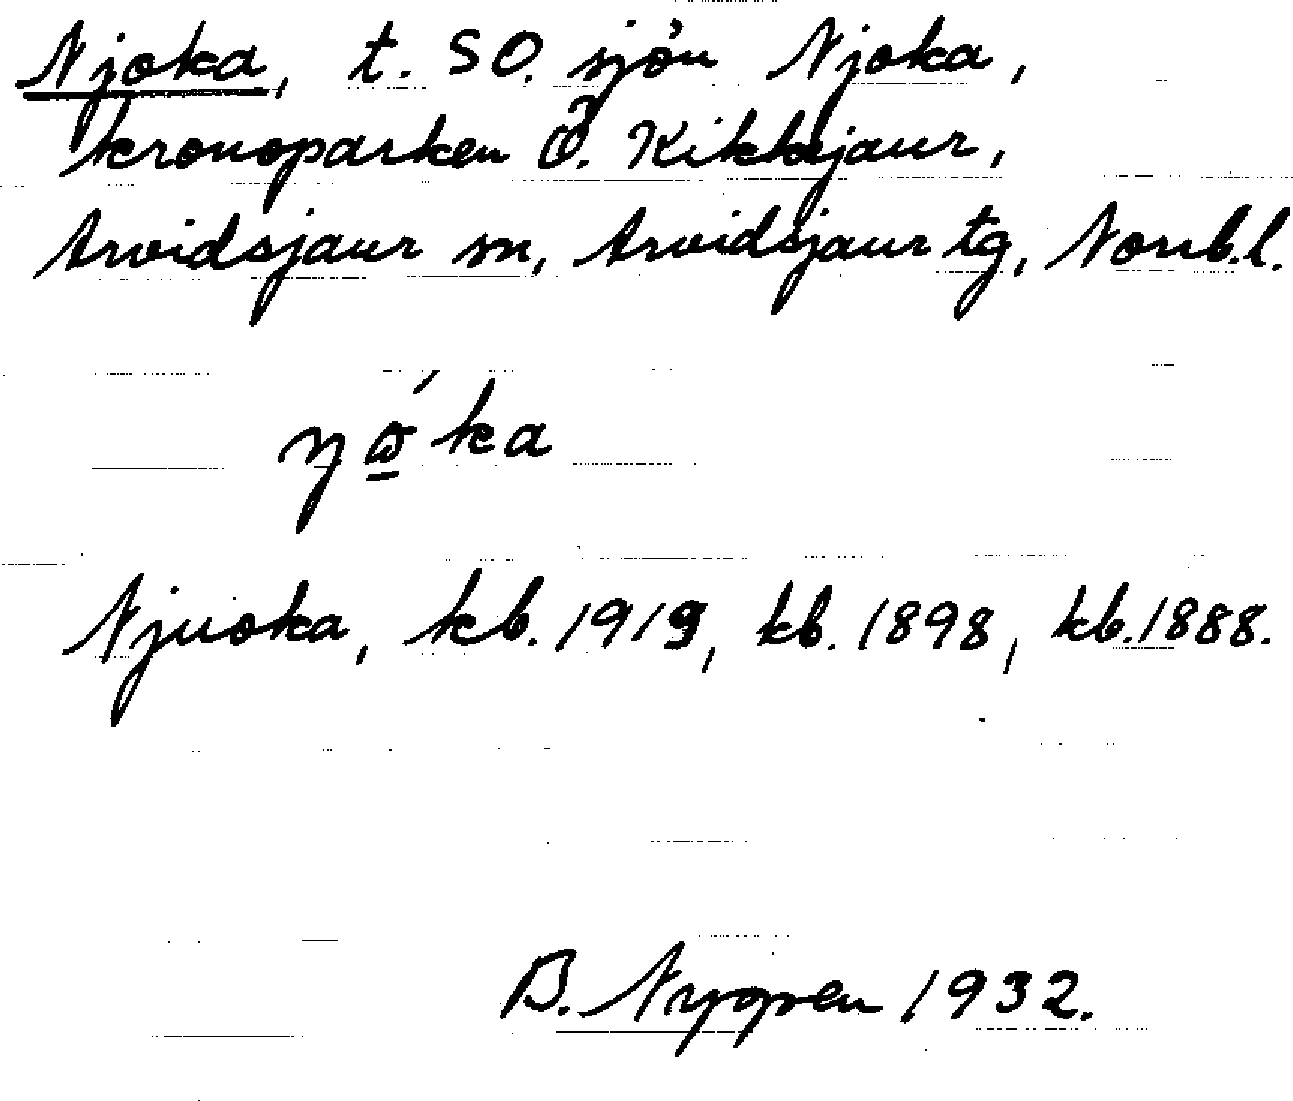 Njoka, t. SO. sjön Njoka,
kronoparken Ö. Kikkejaur,
Arvidsjaur sn, Arvidsjaur tg, Norrb.l.
Njuoka, kb. 1919, kb. 1898, kb. 1888.
B. Nygren 1932.